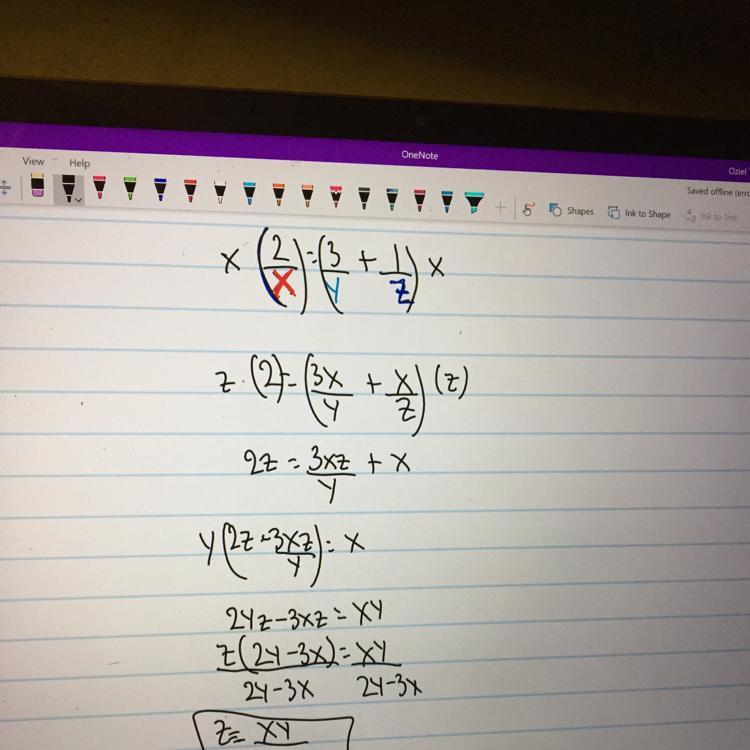 OneNote
Oziel
View Help
Saved offline (erro
Shapes Ink to Shape Ink to Text
x (2/x) = (3/y + 1/z) x
z · (2) = (3x/y + x/z) (z)
2z = 3xz/y + x
y (2z - 3xz/y) = x
2yz - 3xz = xy
z(2y - 3x) = xy
2y - 3x 2y - 3x
z = xy